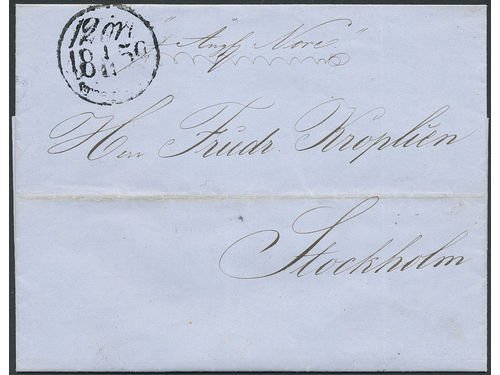 12 ör
18 1/11 56
"Angf Nore"
Herr Friedr. Kroplien
Stockholm